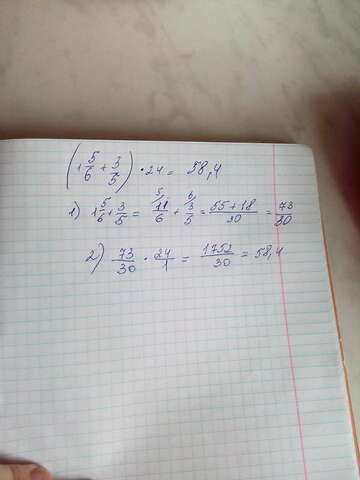 (1 5/6 + 3/5) · 24 = 58,4
1) 1 5/6 + 3/5 = 11/6 ⁵⁄ + 3/5 ⁶⁄ = 55+18/30 = 73/30
2) 73/30 · 24/1 = 1752/30 = 58,4